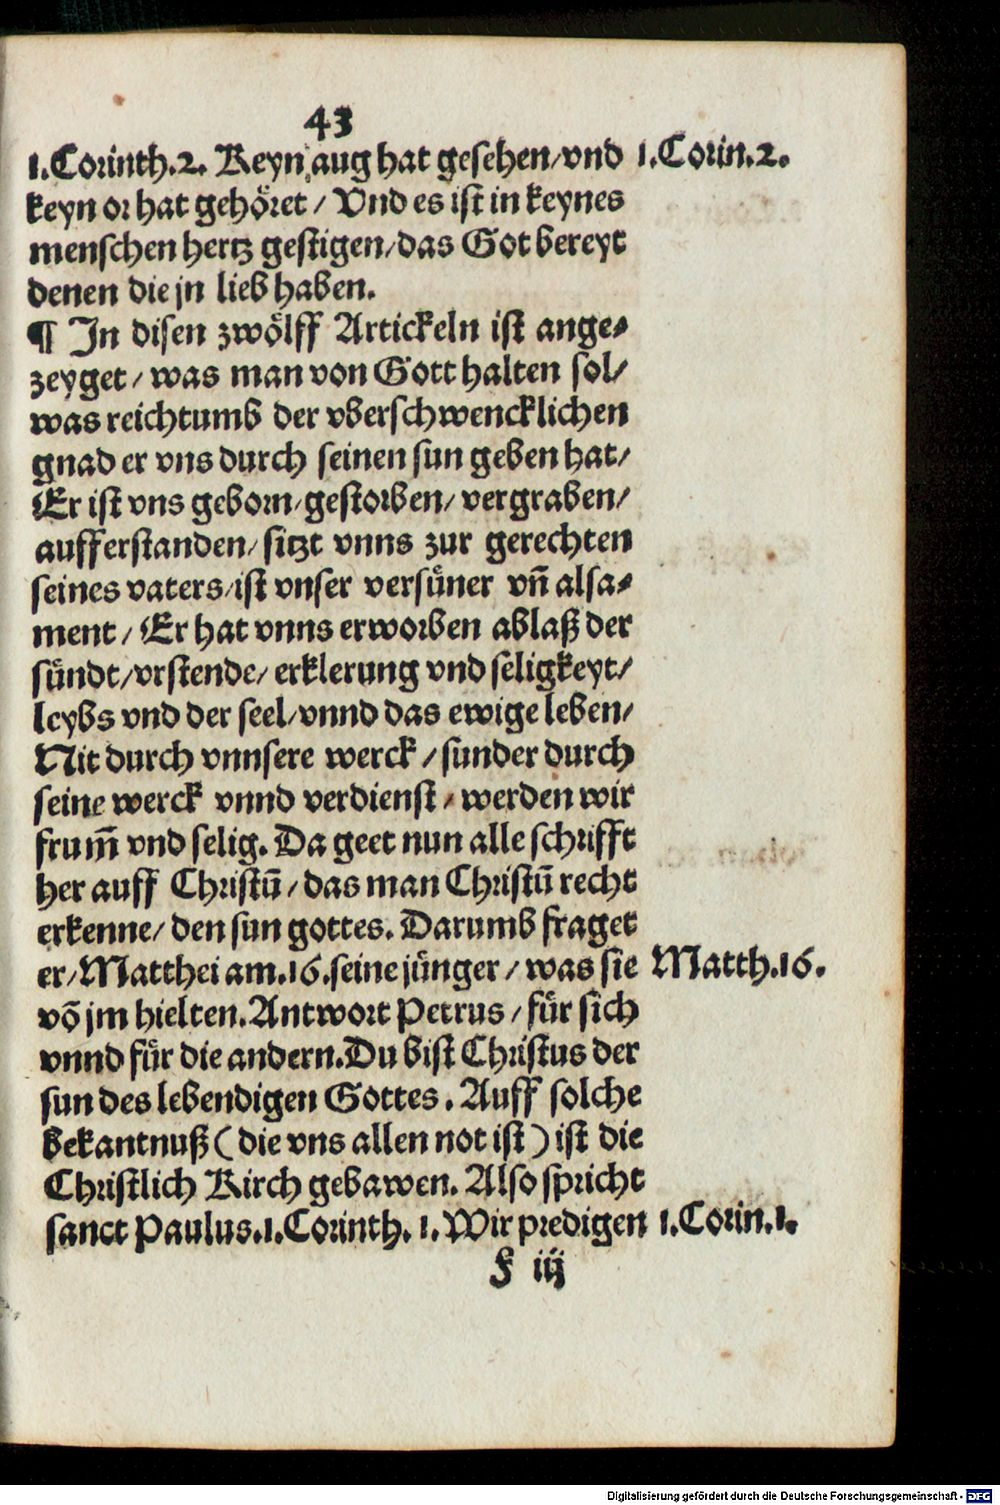 43
1.Corinth.2. Keyn aug hat gesehen/vnd 1.Corin.2.
keyn or hat gehöret / Vnd es ist in keynes
menschen hertz gestigen/das Got bereyt
denen die jn lieb haben.
¶ In disen zwölff Artickeln ist ange-
zeyget / was man von Gott halten sol/
was reichtumb der vberschwencklichen
gnad er vns durch seinen sun geben hat/
Er ist vns geborn/gestorben/ vergraben/
aufferstanden/ sitzt vnns zur gerechten
seines vaters/ist vnser versüner vñ alsa-
ment / Er hat vnns erworben ablaß der
sündt/vrstende/ erklerung vnd seligkeyt/
leybs vnd der seel/vnnd das ewige leben/
Nit durch vnnsere werck / sunder durch
seine werck vnnd verdienst / werden wir
frum̄ vnd selig. Da geet nun alle schrifft
her auff Christū / das man Christū recht
erkenne/ den sun gottes. Darumb fraget
er/Matthei am.16.seine jünger / was sie Matth.16.
võ jm hielten.Antwort Petrus / für sich
vnnd für die andern.Du bist Christus der
sun des lebendigen Gottes. Auff solche
bekantnuß ( die vns allen not ist ) ist die
Christlich Kirch gebawen. Also spricht
sanct Paulus.1.Corinth. 1. Wir predigen 1.Corin.1.
F iij
Digitalisierung gefördert durch die Deutsche Forschungsgemeinschaft - DFG